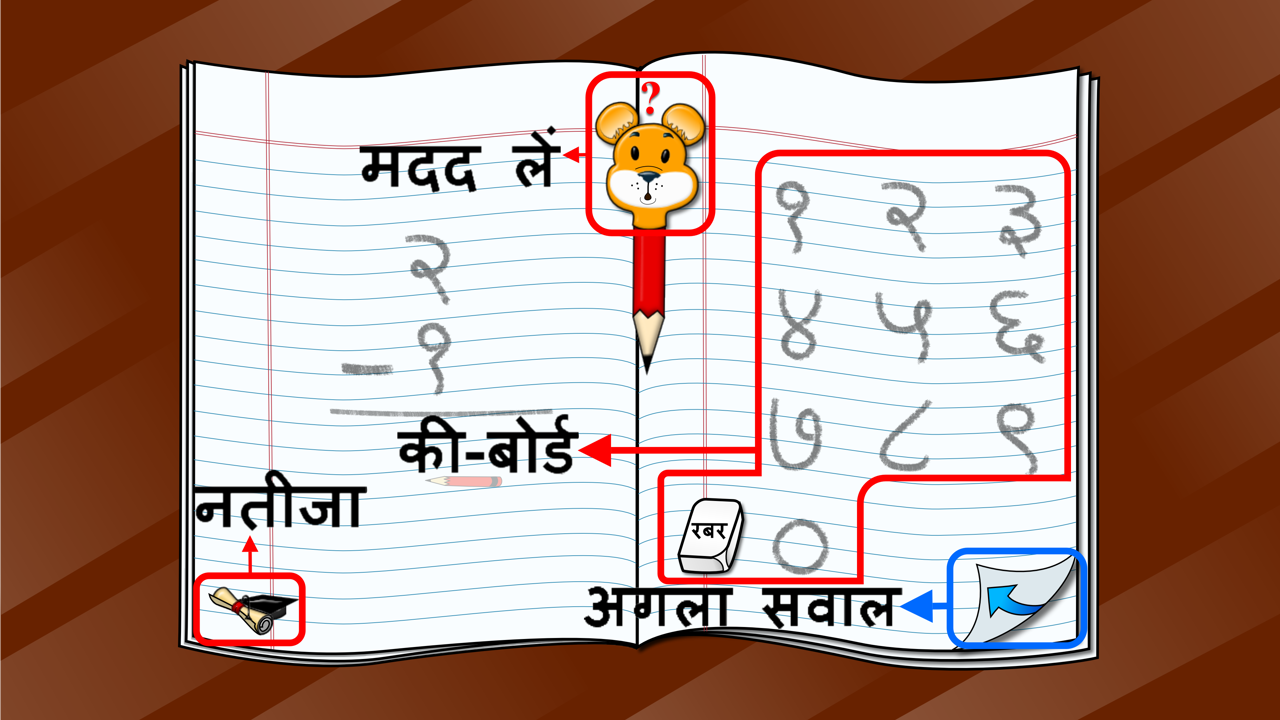 ?
मदद लें
२
-१
की-बोर्ड
नतीजा
१ २ ३
४ ५ ६
७ ८ ९
रबर ०
अगला सवाल